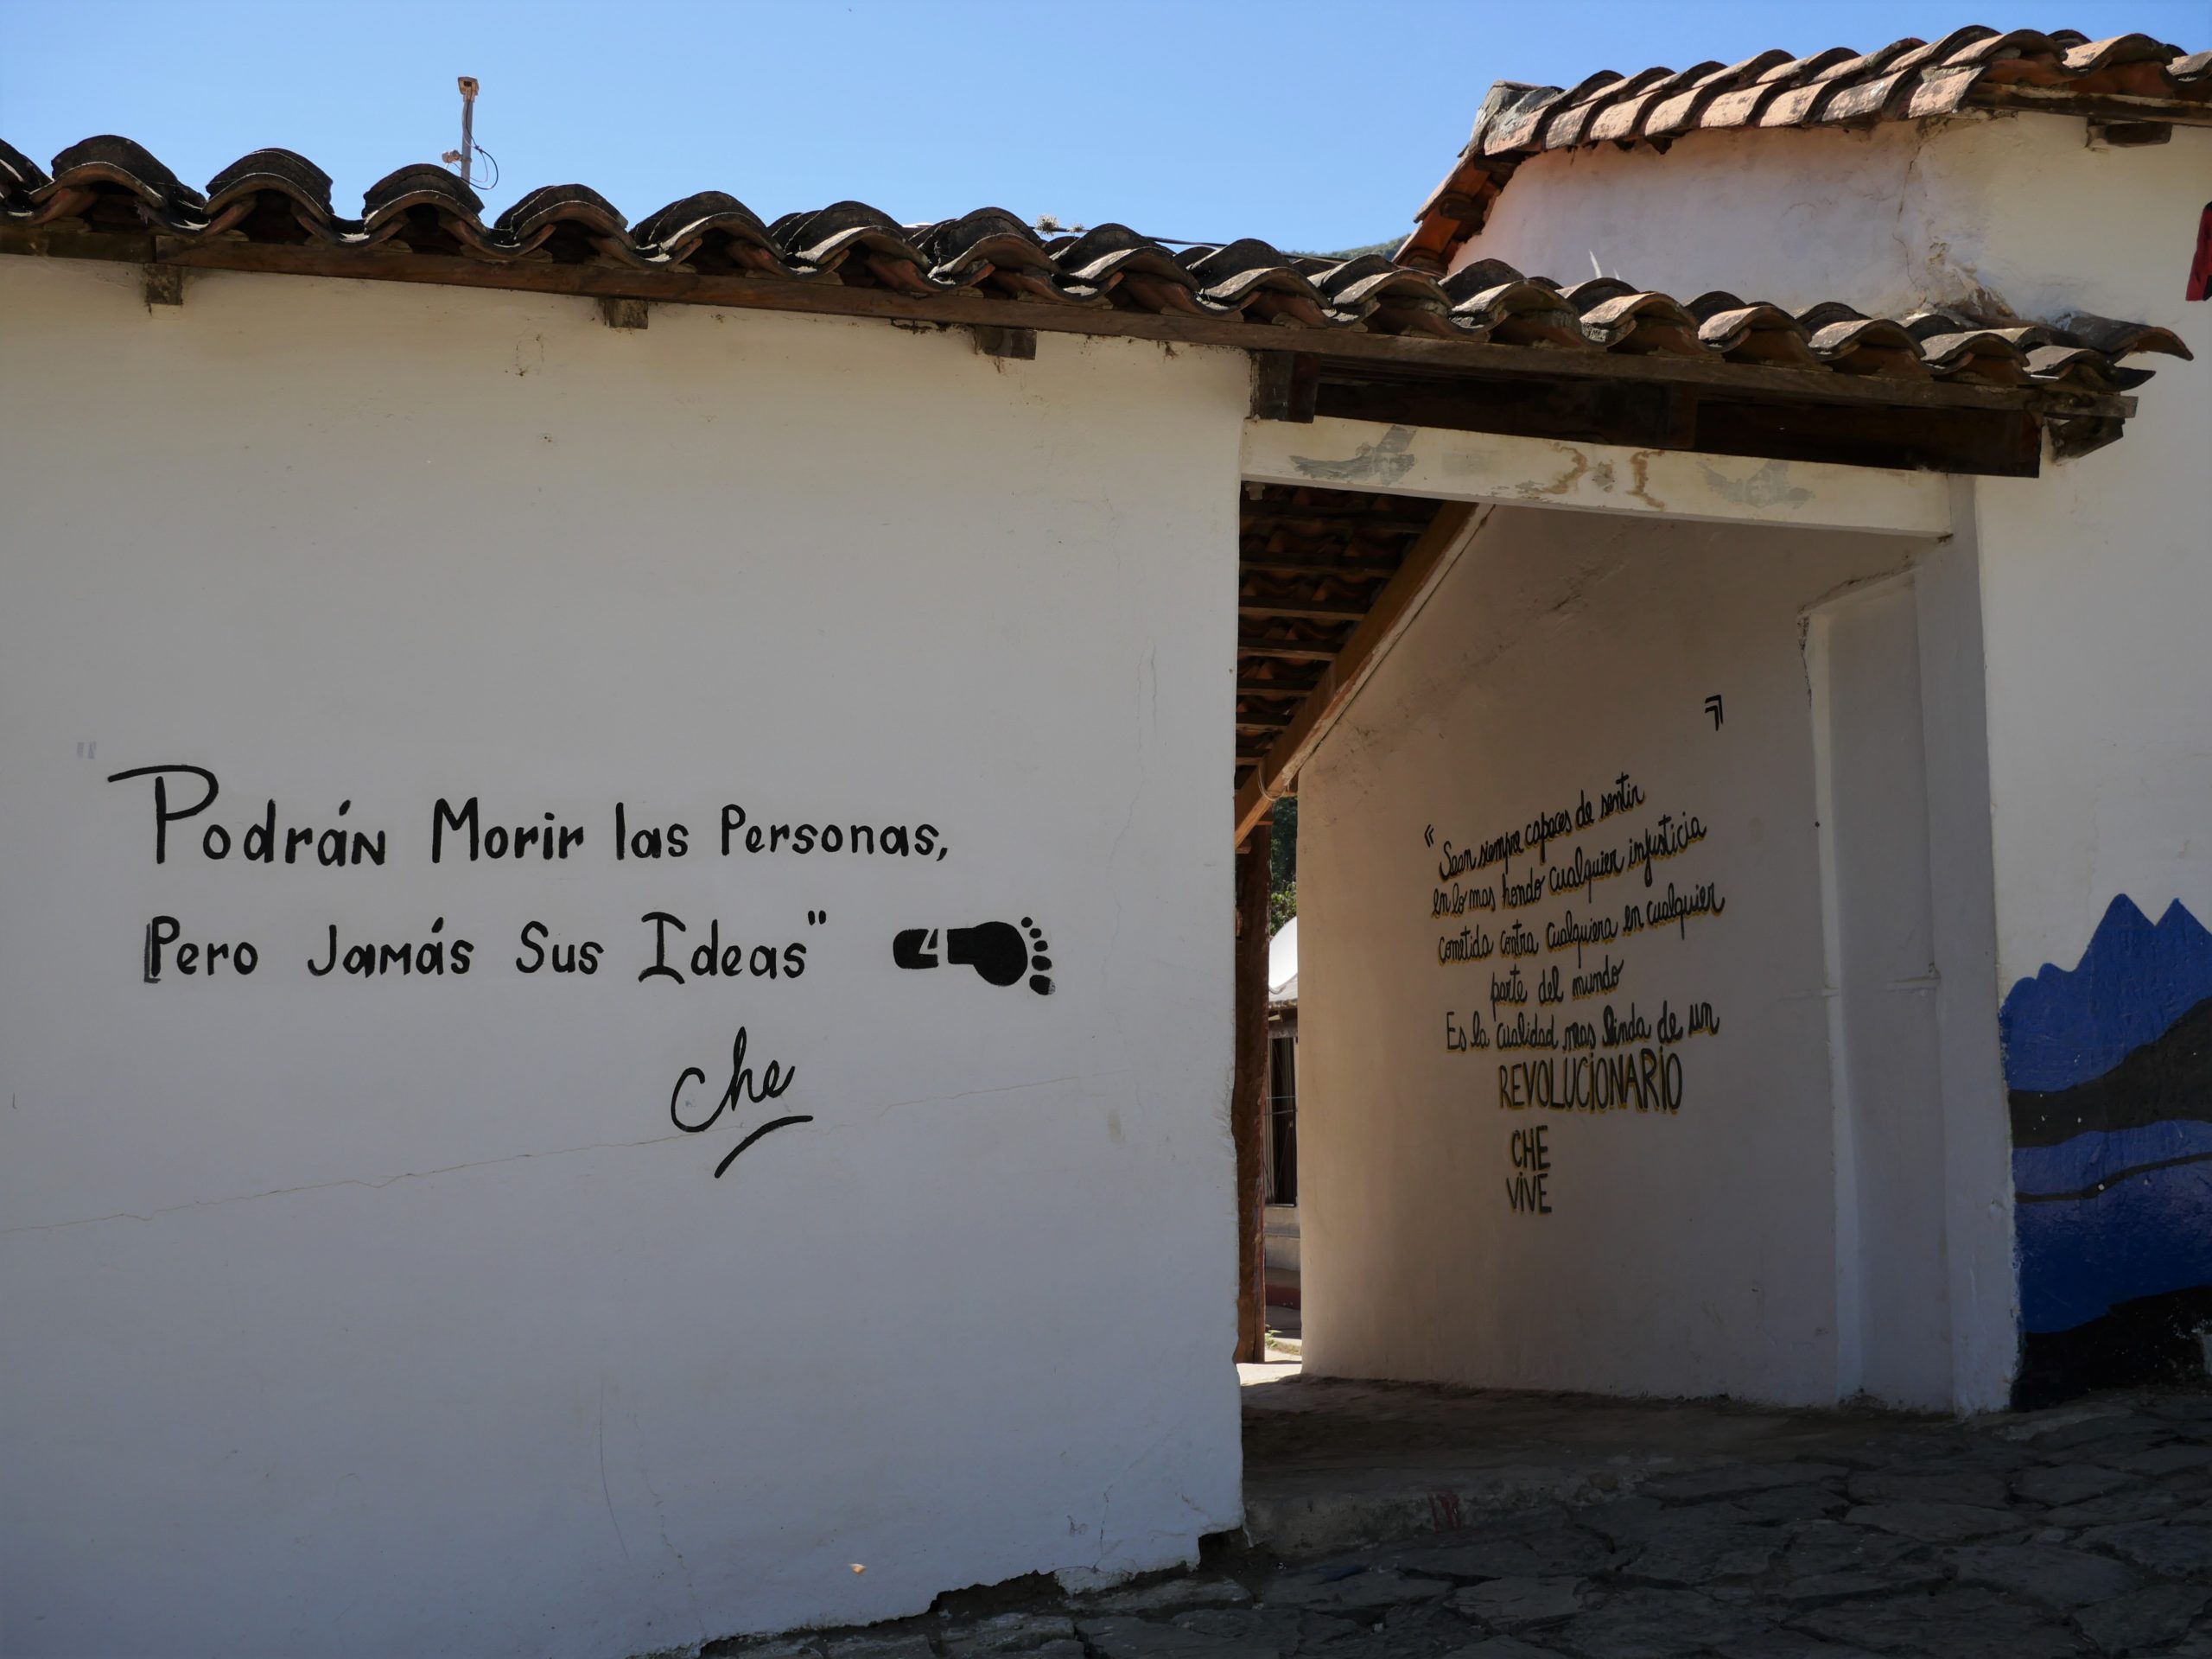 "Podrán Morir las Personas,
Pero Jamás Sus Ideas"
4
Che
« Sean siempre capaces de sentir
en lo mas hondo cualquier injusticia
cometida contra cualquiera en cualquier
parte del mundo
Es la cualidad mas linda de un
REVOLUCIONARIO
CHE
VIVE